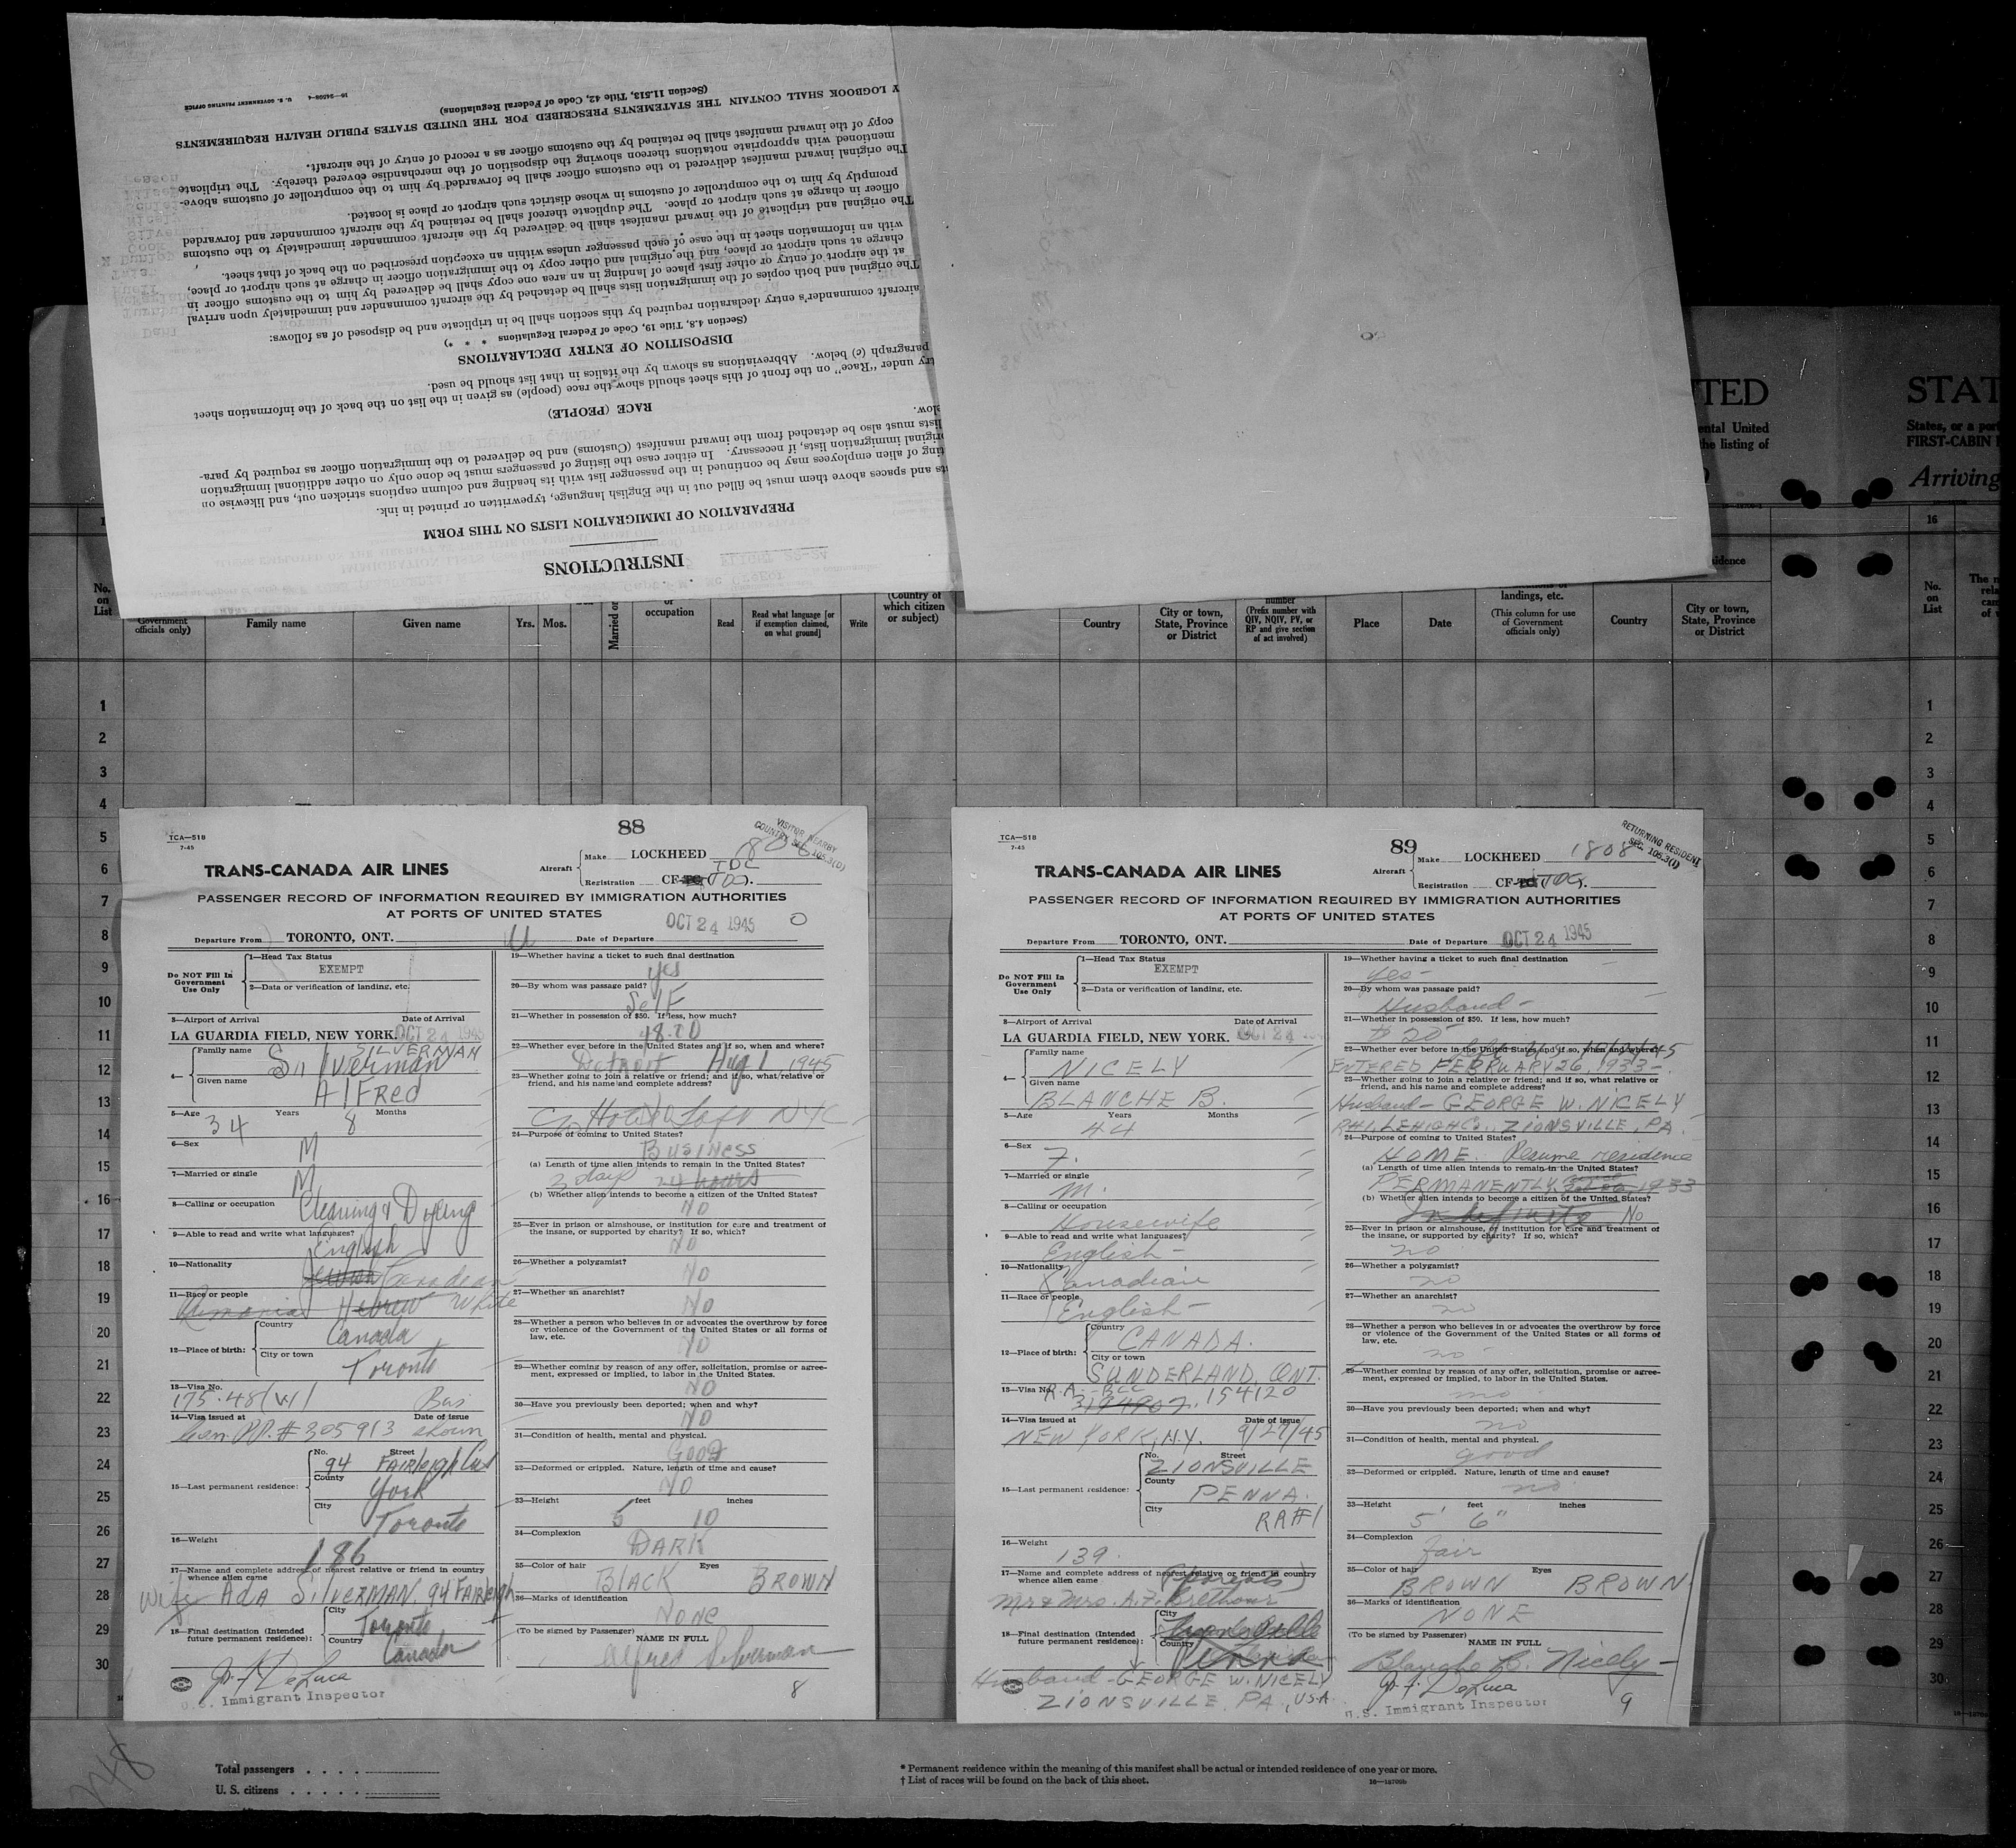 16—24508-4 U. S. GOVERNMENT PRINTING OFFICE
INSTRUCTIONS
PREPARATION OF IMMIGRATION LISTS ON THIS FORM
ts and spaces above them must be filled out in the English language, typewritten or printed in ink.
ting of alien employees may be continued in the passenger list with its heading and column captions stricken out, and likewise on
original immigration lists, if necessary. In either case the listing of passengers must be done only on other additional immigration
lists must also be detached from the inward manifest (Customs) and be delivered to the immigration officer as required by para-
elow.
RACE (PEOPLE)
try under "Race" on the front of this sheet should show the race (people) as given in the list on the back of the information sheet
paragraph (c) below. Abbreviations as shown by the italics in that list should be used.
DISPOSITION OF ENTRY DECLARATIONS
(Section 4.8, Title 19, Code of Federal Regulations * * *)
aircraft commander's entry declaration required by this section shall be in triplicate and be disposed of as follows:
The original and both copies of the immigration lists shall be detached by the aircraft commander and immediately upon arrival
at the airport of entry or other first place of landing in an area one copy shall be delivered by him to the customs officer in
charge at such airport or place, and the original and other copy to the immigration officer in charge at such airport or place,
with an information sheet in the case of each passenger unless within an exception prescribed on the back of that sheet.
The original and triplicate of the inward manifest shall be delivered by the aircraft commander immediately to the customs
officer in charge at such airport or place. The duplicate thereof shall be retained by the aircraft commander and forwarded
promptly by him to the comptroller of customs in whose district such airport or place is located.
The original inward manifest delivered to the customs officer shall be forwarded by him to the comptroller of customs above-
mentioned with appropriate notations thereon showing the disposition of the merchandise covered thereby. The triplicate
copy of the inward manifest shall be retained by the customs officer as a record of entry of the aircraft.
Y LOGBOOK SHALL CONTAIN THE STATEMENTS PRESCRIBED FOR THE UNITED STATES PUBLIC HEALTH REQUIREMENTS
(Section 11.513, Title 42, Code of Federal Regulations)
TED STAT
ental United
the listing of
States, or a port
FIRST-CABIN
Arriving
16
No. on List
Government officials only)
Family name
Given name
Yrs. Mos.
Married or
or occupation
Read
Read what language [or if exemption claimed, on what ground]
Write
(Country of which citizen or subject)
Country
City or town, State, Province or District
number (Prefix number with QIV, NQIV, PV, or RP and give section of act involved)
Place
Date
landings, etc. (This column for use of Government officials only)
idence
Country
City or town, State, Province or District
No. on List
1
2
3
4
5
6
7
8
9
10
11
12
13
14
15
16
17
18
19
20
21
22
23
24
25
26
27
28
29
30
TCA—518
7-45
88
VISITOR NEARBY
COUNTRY SEC. 105.3(D)
TRANS-CANADA AIR LINES
Aircraft Make LOCKHEED
TDC
Registration CF-TC (TDC).
PASSENGER RECORD OF INFORMATION REQUIRED BY IMMIGRATION AUTHORITIES
AT PORTS OF UNITED STATES
Departure From TORONTO, ONT. U Date of Departure OCT 24 1945
Do NOT Fill In Government Use Only
1—Head Tax Status
EXEMPT
2—Data or verification of landing, etc.
3—Airport of Arrival Date of Arrival
LA GUARDIA FIELD, NEW YORK. OCT 24 1945
4— Family name SILVERMAN
Silverman
Given name AlFRed
5—Age 34 Years 8 Months
6—Sex M
7—Married or single M
8—Calling or occupation Cleaning & Dyeing
9—Able to read and write what languages? English
10—Nationality Canadian
11—Race or people Hebrew White
12—Place of birth: Country Canada
City or town Toronto
13—Visa No. 175.48(W)
14—Visa issued at Date of issue
Can. PP. #305913 shown
15—Last permanent residence: No. 94 Street FAIRleigh
County York
City Toronto
16—Weight 186
17—Name and complete address of nearest relative or friend in country whence alien came
Wife ADA SilVERMAN, 94 FAIRleigh
18—Final destination (Intended future permanent residence): City Toronto
Country Canada
J. F. DeLuca
U.S. Immigrant Inspector
19—Whether having a ticket to such final destination
yes
20—By whom was passage paid?
SelF
21—Whether in possession of $50. If less, how much?
48.20
22—Whether ever before in the United States and if so, when and where?
Detroit Aug 1 1945
23—Whether going to join a relative or friend; and if so, what relative or friend, and his name and complete address?
No
24—Purpose of coming to United States?
Business
(a) Length of time alien intends to remain in the United States?
3 days 24 hours
(b) Whether alien intends to become a citizen of the United States?
No
25—Ever in prison or almshouse, or institution for care and treatment of the insane, or supported by charity? If so, which?
No
26—Whether a polygamist?
No
27—Whether an anarchist?
No
28—Whether a person who believes in or advocates the overthrow by force or violence of the Government of the United States or all forms of law, etc.
No
29—Whether coming by reason of any offer, solicitation, promise or agreement, expressed or implied, to labor in the United States.
No
30—Have you previously been deported; when and why?
No
31—Condition of health, mental and physical.
Good
32—Deformed or crippled. Nature, length of time and cause?
No
33—Height 5 feet 10 inches
34—Complexion DARK
35—Color of hair BlACK Eyes BROWN
36—Marks of identification None
(To be signed by Passenger) NAME IN FULL
Alfred Silverman
8
TCA—518
7-45
89
RETURNING RESIDENT
SEC. 105.3(I)
TRANS-CANADA AIR LINES
Aircraft Make LOCKHEED 1808
Registration CF-TC (TDC).
PASSENGER RECORD OF INFORMATION REQUIRED BY IMMIGRATION AUTHORITIES
AT PORTS OF UNITED STATES
Departure From TORONTO, ONT. Date of Departure OCT 24 1945
Do NOT Fill In Government Use Only
1—Head Tax Status
EXEMPT
2—Data or verification of landing, etc.
3—Airport of Arrival Date of Arrival
LA GUARDIA FIELD, NEW YORK. OCT 24
4— Family name NICELY
Given name BLANCHE B.
5—Age 44 Years Months
6—Sex F.
7—Married or single M.
8—Calling or occupation Housewife
9—Able to read and write what languages? English
10—Nationality Canadian
11—Race or people English
12—Place of birth: Country CANADA.
City or town SUNDERLAND, ONT.
13—Visa No. 154120
14—Visa issued at NEW YORK, N.Y. Date of issue 9/27/45
15—Last permanent residence: No. Street ZIONSVILLE
County PENNA.
City RR#1
16—Weight 139
17—Name and complete address of nearest relative or friend in country whence alien came (Parents)
Mr & Mrs. A.F. Brethour
18—Final destination (Intended future permanent residence): City
Country
Husband - GEORGE W. NICELY
ZIONSVILLE, PA., U.S.A.
19—Whether having a ticket to such final destination
yes—
20—By whom was passage paid?
Husband—
21—Whether in possession of $50. If less, how much?
$20
22—Whether ever before in the United States and if so, when and where?
ENTERED FEBRUARY 26, 1933—
23—Whether going to join a relative or friend; and if so, what relative or friend, and his name and complete address?
Husband—GEORGE W. NICELY
RH1, LEHIGH Co., ZIONSVILLE, PA.
24—Purpose of coming to United States?
HOME. Resume residence
(a) Length of time alien intends to remain in the United States?
PERMANENTLY 1933
(b) Whether alien intends to become a citizen of the United States?
Indefinite No
25—Ever in prison or almshouse, or institution for care and treatment of the insane, or supported by charity? If so, which?
no
26—Whether a polygamist?
no
27—Whether an anarchist?
no
28—Whether a person who believes in or advocates the overthrow by force or violence of the Government of the United States or all forms of law, etc.
no
29—Whether coming by reason of any offer, solicitation, promise or agreement, expressed or implied, to labor in the United States.
no
30—Have you previously been deported; when and why?
no
31—Condition of health, mental and physical.
good
32—Deformed or crippled. Nature, length of time and cause?
no
33—Height 5' feet 6" inches
34—Complexion fair
35—Color of hair BROWN Eyes BROWN
36—Marks of identification NONE
(To be signed by Passenger) NAME IN FULL
Blanche B. Nicely—
J. F. DeLuca
U.S. Immigrant Inspector
9
Total passengers . . . .
U. S. citizens . . . . .
* Permanent residence within the meaning of this manifest shall be actual or intended residence of one year or more.
† List of races will be found on the back of this sheet.